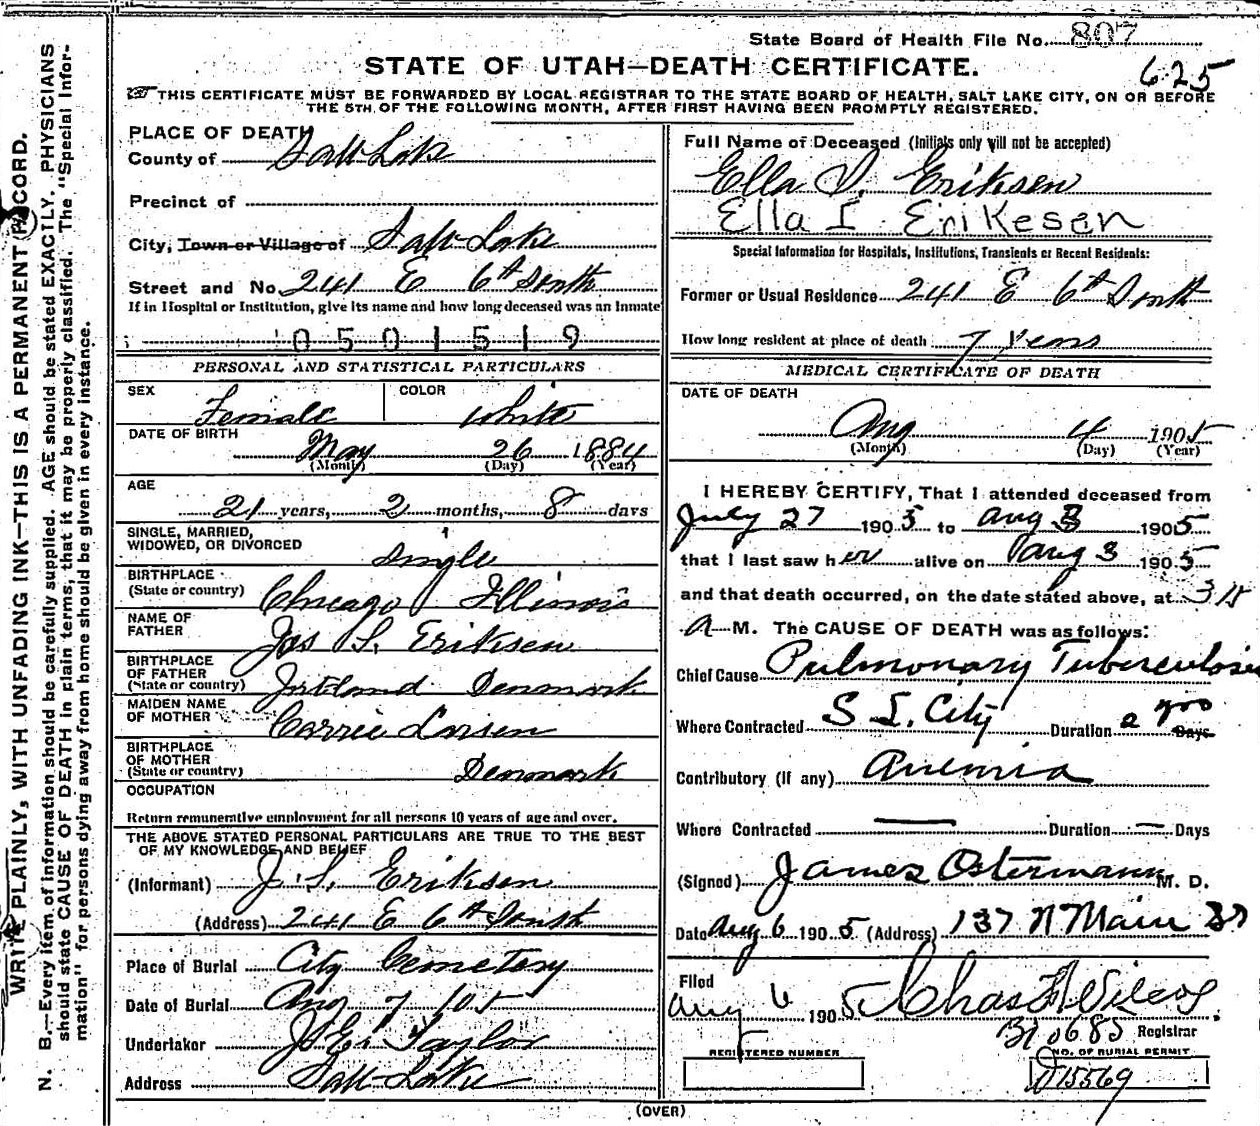 State Board of Health File No. 807
625
STATE OF UTAH—DEATH CERTIFICATE.
THIS CERTIFICATE MUST BE FORWARDED BY LOCAL REGISTRAR TO THE STATE BOARD OF HEALTH, SALT LAKE CITY, ON OR BEFORE
THE 5TH OF THE FOLLOWING MONTH, AFTER FIRST HAVING BEEN PROMPTLY REGISTERED.
WRITE PLAINLY, WITH UNFADING INK—THIS IS A PERMANENT RECORD.
N. B.—Every item of information should be carefully supplied. AGE should be stated EXACTLY. PHYSICIANS
should state CAUSE OF DEATH in plain terms, that it may be properly classified. The "Special Infor-
mation" for persons dying away from home should be given in every instance.
PLACE OF DEATH
County of Salt Lake
Precinct of
City, Town or Village of Salt Lake
Street and No. 241 E 6th South
If in Hospital or Institution, give its name and how long deceased was an Inmate
0501519
PERSONAL AND STATISTICAL PARTICULARS
SEX Female COLOR White
DATE OF BIRTH May 26 1884
(Month) (Day) (Year)
AGE
21 years, 2 months, 8 days
SINGLE, MARRIED,
WIDOWED, OR DIVORCED Single
BIRTHPLACE
(State or country) Chicago Illinois
NAME OF
FATHER Jas S. Eriksen
BIRTHPLACE
OF FATHER
(State or country) Jutland Denmark
MAIDEN NAME
OF MOTHER Carrie Larsen
BIRTHPLACE
OF MOTHER
(State or country) Denmark
OCCUPATION
Return remunerative employment for all persons 10 years of age and over.
THE ABOVE STATED PERSONAL PARTICULARS ARE TRUE TO THE BEST
OF MY KNOWLEDGE AND BELIEF
(Informant) J. S. Eriksen
(Address) 241 E 6th South
Place of Burial City Cemetery
Date of Burial Aug 7 105
Undertaker Taylor
Address Salt Lake
Full Name of Deceased (Initials only will not be accepted)
Ella I. Eriksen
Ella I Erikesen
Special Information for Hospitals, Institutions, Transients or Recent Residents:
Former or Usual Residence 241 E 6th South
How long resident at place of death 7 Years
MEDICAL CERTIFICATE OF DEATH
DATE OF DEATH
Aug 4 1905
(Month) (Day) (Year)
I HEREBY CERTIFY, That I attended deceased from
July 27 1905 to Aug 3 1905
that I last saw her alive on Aug 3 1905
and that death occurred, on the date stated above, at 315
A M. The CAUSE OF DEATH was as follows:
Chief Cause Pulmonary Tuberculosis
Where Contracted S L City Duration 2 yrs Days
Contributory (If any) Anemia
Where Contracted — Duration — Days
(Signed) James Ostermann M. D.
Date Aug 6 1905 (Address) 137 N Main St
Filed
Aug 6 1905 Chas F Wilcox
Registrar
REGISTERED NUMBER
NO. OF BURIAL PERMIT
D15569
(OVER)